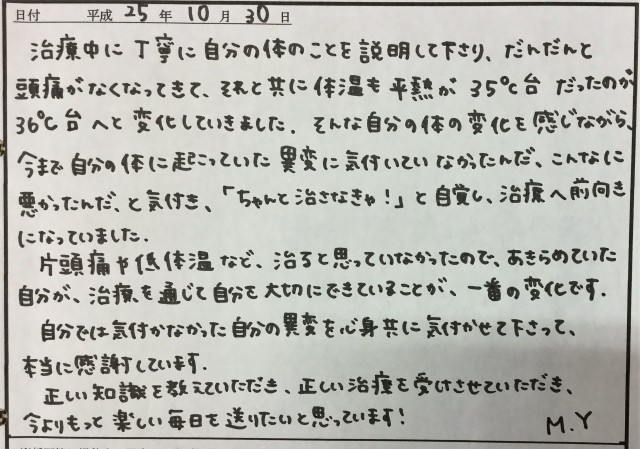 日付 平成 25 年 10 月 30 日
治療中に丁寧に自分の体のことを説明して下さり、だんだんと
頭痛がなくなってきて、それと共に体温も平熱が35℃台だったのが
36℃台へと変化していきました。そんな自分の体の変化を感じながら、
今まで自分の体に起こっていた異変に気付いていなかったんだ、こんなに
悪かったんだ、と気付き、「ちゃんと治さなきゃ!」と自覚し、治療へ前向き
になっていました。
片頭痛や低体温など、治ると思っていなかったので、あきらめていた
自分が、治療を通じて自分を大切にできていることが、一番の変化です。
自分では気付かなかった自分の異変を心身共に気付かせて下さって、
本当に感謝しています。
正しい知識を教えていただき、正しい治療を受けさせていただき、
今よりもっと楽しい毎日を送りたいと思っています!
M.Y